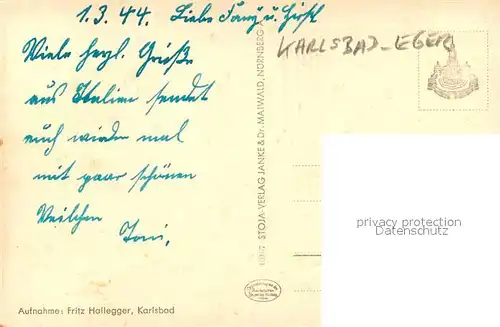 1.3.44. Liebe Fanny u. Gustl
Viele herzl. Grüße
aus Italien sendet
euch wieder mal
mit paar schönen
Veilchen
Toni.
KARLSBAD-EGER
STOJA-VERLAG JANKE & Dr. MAIWALD, NÜRNBERG
Aufnahme: Fritz Hallegger, Karlsbad
privacy protection
Datenschutz